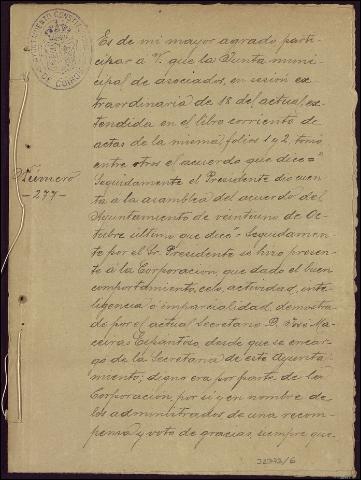 Es de mi mayor agrado, parti-
cipar a V. que la Junta muni-
cipal de asociados, en sesión ex-
traordinaria de 18 del actual, ex-
tendida en el libro corriente de
actas de la misma, folios 1 y 2, tomó
entre otros el acuerdo que dice=
Seguidamente el Presidente dio cuen
ta a la asamblea del acuerdo del
Ayuntamiento de veintiuno de Oc-
tubre último que dice= Seguidamente
por el Sr. Presidente se hizo presen
te á la Corporación, que dado el buen
comportamiento, celo, actividad, inte-
ligencia é imparcialidad, demostra-
do por el actual Secretario D. José Ma-
ceiras Espantoso, desde que se encar-
gó de la Secretaria de este Ayunta-
miento; digno era por parte de la
Corporación, por sí y en nombre de
los administrados de una recom-
pensa y voto de gracias, siempre que
Número
-277-
32773/6